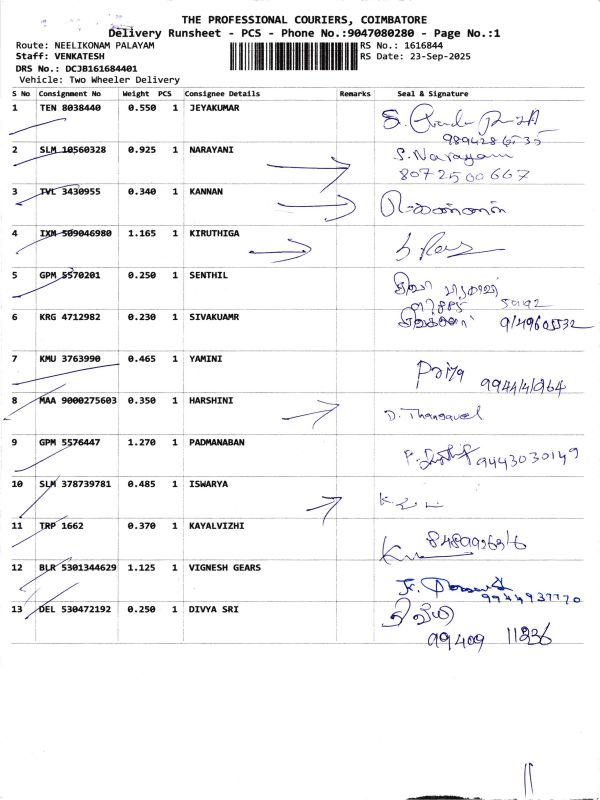 THE PROFESSIONAL COURIERS, COIMBATORE
Delivery Runsheet - PCS - Phone No.:9047080280 - Page No.:1
Route: NEELIKONAM PALAYAM RS No.: 1616844
Staff: VENKATESH RS Date: 23-Sep-2025
DRS No.: DCJB161684401
Vehicle: Two Wheeler Delivery
S No Consignment No Weight PCS Consignee Details Remarks Seal & Signature
1 TEN 8038440 0.550 1 JEYAKUMAR
2 SLM 10560328 0.925 1 NARAYANI S. Narayani
8072500667
3 TVL 3430955 0.340 1 KANNAN
4 IXM 509046980 1.165 1 KIRUTHIGA
5 GPM 5570201 0.250 1 SENTHIL
6 KRG 4712982 0.230 1 SIVAKUAMR
7 KMU 3763990 0.465 1 YAMINI Priya
8 MAA 9000275603 0.350 1 HARSHINI D. Thangavel
9 GPM 5576447 1.270 1 PADMANABAN 9443030149
10 SLM 378739781 0.485 1 ISWARYA
11 TRP 1662 0.370 1 KAYALVIZHI
12 BLR 5301344629 1.125 1 VIGNESH GEARS
9944937770
13 DEL 530472192 0.250 1 DIVYA SRI
99409 11836